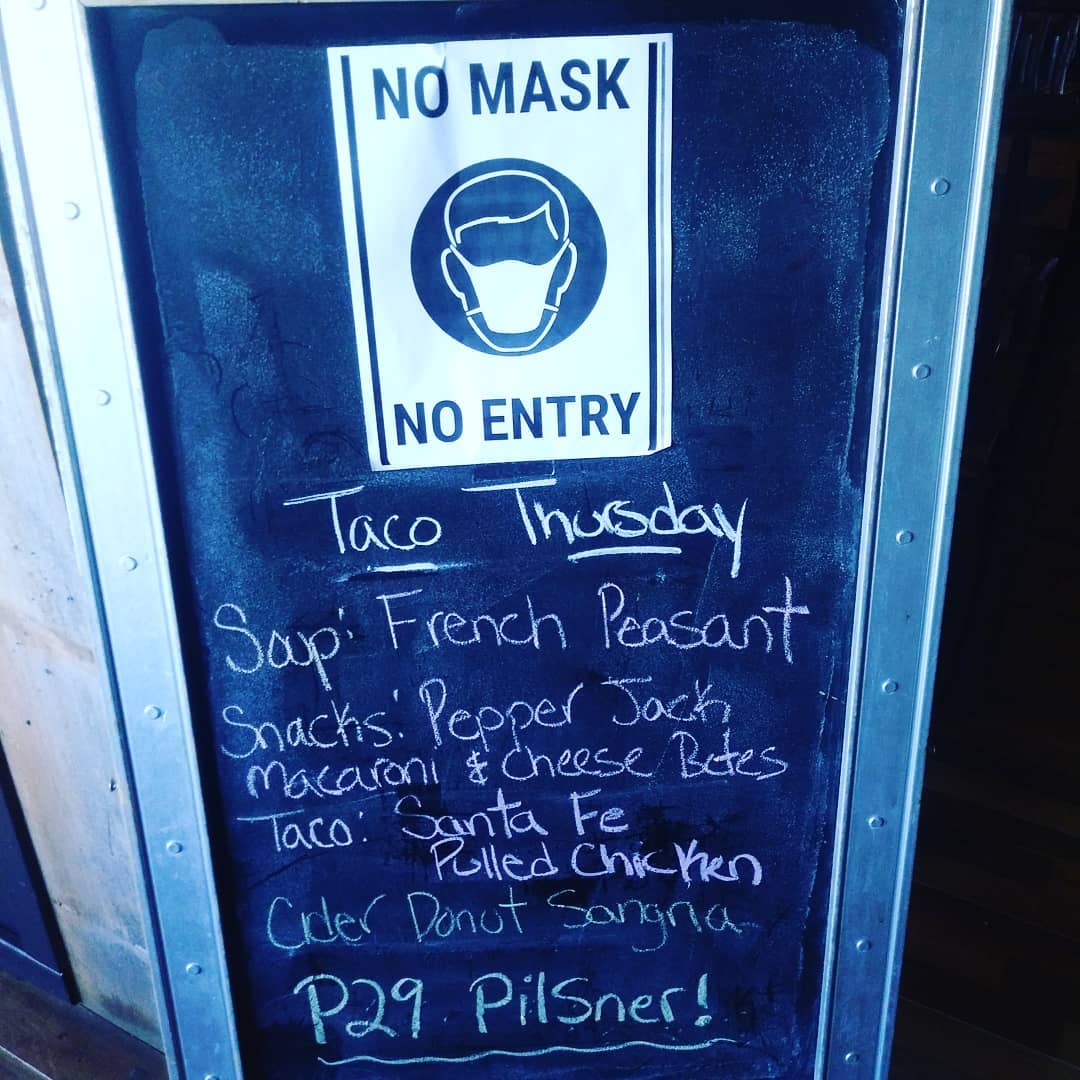 NO MASK
NO ENTRY
Taco Thursday
Soup: French Peasant
Snacks: Pepper Jack
Macaroni & Cheese Bites
Taco: Santa Fe
Pulled Chicken
Cider Donut Sangria
P29 Pilsner!